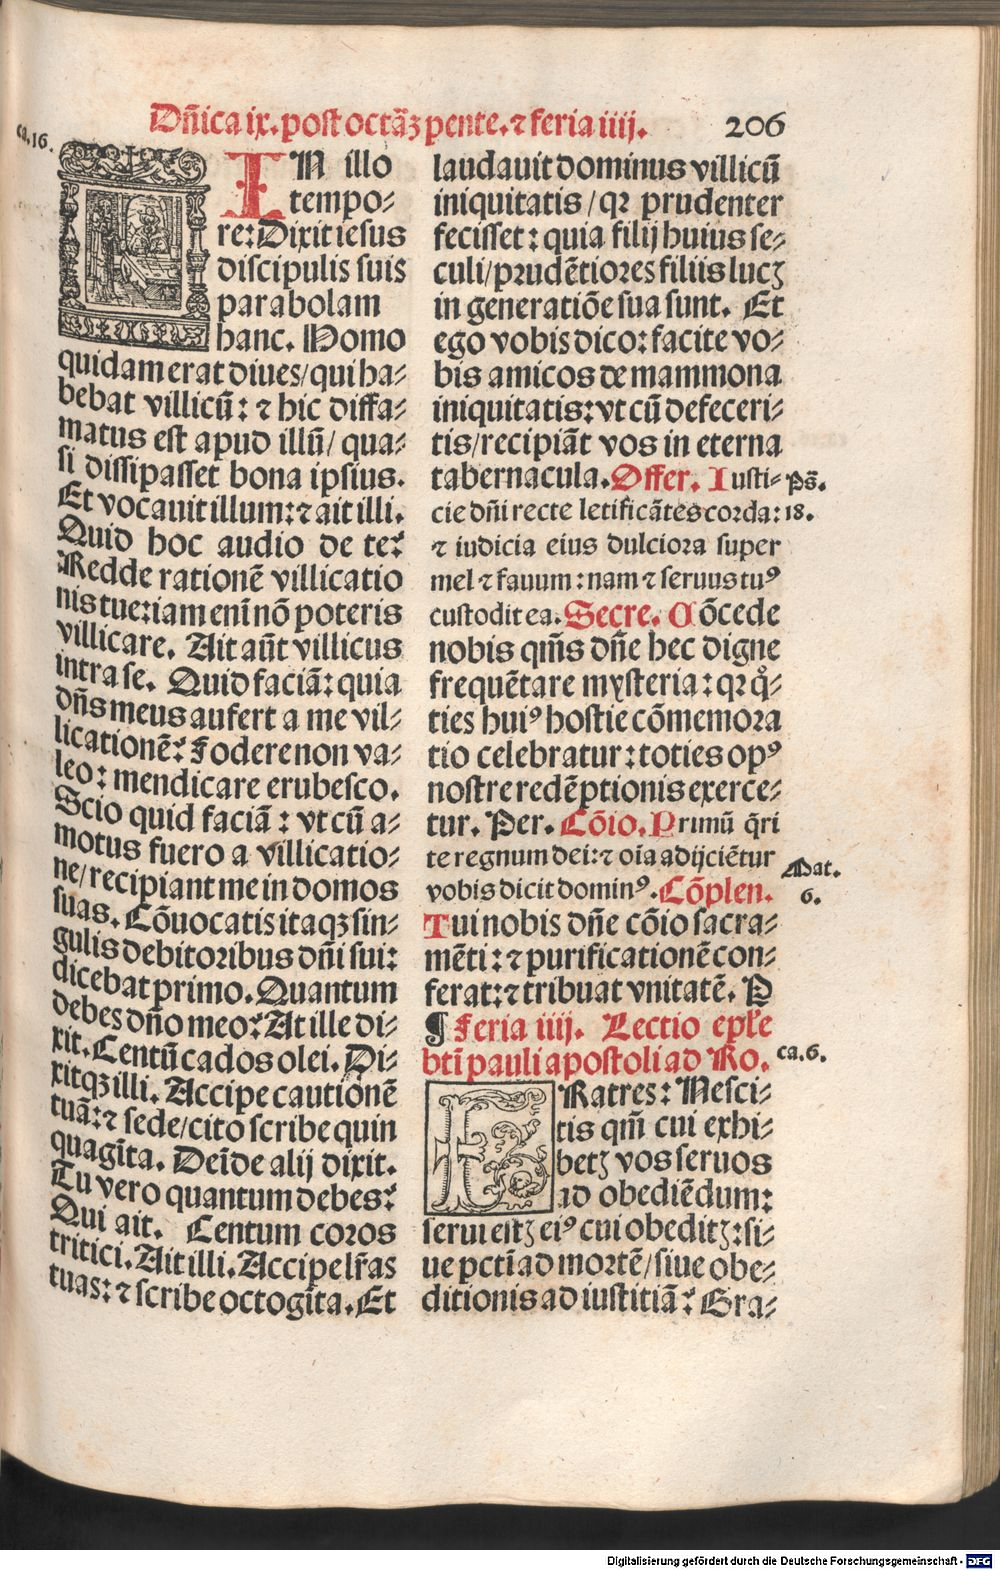 Dñica ix. post octãꝫ pente. ⁊ feria iiij.
206
ca.16.
IN illo
tempo⸗
re: Dixit iesus
discipulis suis
parabolam
hanc. Homo
quidam erat diues/ qui ha⸗
bebat villicũ: ⁊ hic diffa⸗
matus est apud illũ/ qua⸗
si dissipasset bona ipsius.
Et vocauit illum: ⁊ ait illi.
Quid hoc audio de te?
Redde rationẽ villicatio
nis tue: iam enĩ nõ poteris
villicare. Ait aũt villicus
intra se. Quid faciã: quia
dñs meus aufert a me vil⸗
licationẽ? Fodere non va⸗
leo: mendicare erubesco.
Scio quid faciã: vt cũ a⸗
motus fuero a villicatio⸗
ne/ recipiant me in domos
suas. Cõuocatis itaqꝫ sin⸗
gulis debitoribus dñi sui:
dicebat primo. Quantum
debes dño meo? At ille di⸗
xit. Centũ cados olei. Di⸗
xitqꝫ illi. Accipe cautionẽ
tuã: ⁊ sede/ cito scribe quin
quagĩta. Deĩde alij dixit.
Tu vero quantum debes?
Qui ait. Centum coros
tritici. Ait illi. Accipe lr̃as
tuas: ⁊ scribe octogĩta. Et
laudauit dominus villicũ
iniquitatis/ qꝛ prudenter
fecisset: quia filij huius se⸗
culi/ prudẽtiores filiis lucꝫ
in generatiõe sua sunt. Et
ego vobis dico: facite vo⸗
bis amicos de mammona
iniquitatis: vt cũ defeceri⸗
tis/ recipiãt vos in eterna
tabernacula. Offer. Iusti⸗
cie dñi recte letificãtes corda:
⁊ iudicia eius dulciora super
mel ⁊ fauum: nam ⁊ seruus tuꝰ
custodit ea. Secre. Cõcede
nobis qm̃s dñe hec digne
frequẽtare mysteria: qꝛ qͦ⸗
ties huiꝰ hostie cõmemora
tio celebratur: toties opꝰ
nostre redẽptionis exerce⸗
tur. Per. Cõio. Primũ q̃ri
te regnum dei: ⁊ oĩa adijciẽtur
vobis dicit dominꝰ. Cõplen.
Tui nobis dñe cõio sacra⸗
mẽti: ⁊ purificationẽ con⸗
ferat: ⁊ tribuat vnitatẽ. P
¶ Feria iiij. Lectio epl̃e
bti̅ pauli apostoli ad Ro.
FRatres: Nesci⸗
tis qm̃ cui exhi⸗
betꝫ vos seruos
ad obediẽdum:
serui estꝫ eiꝰ cui obeditꝫ: si⸗
ue pctĩ ad mortẽ/ siue obe⸗
ditionis ad iustitiã? Gra⸗
Ps̃.
18.
Mat.
6.
ca.6.
Digitalisierung gefördert durch die Deutsche Forschungsgemeinschaft - DFG